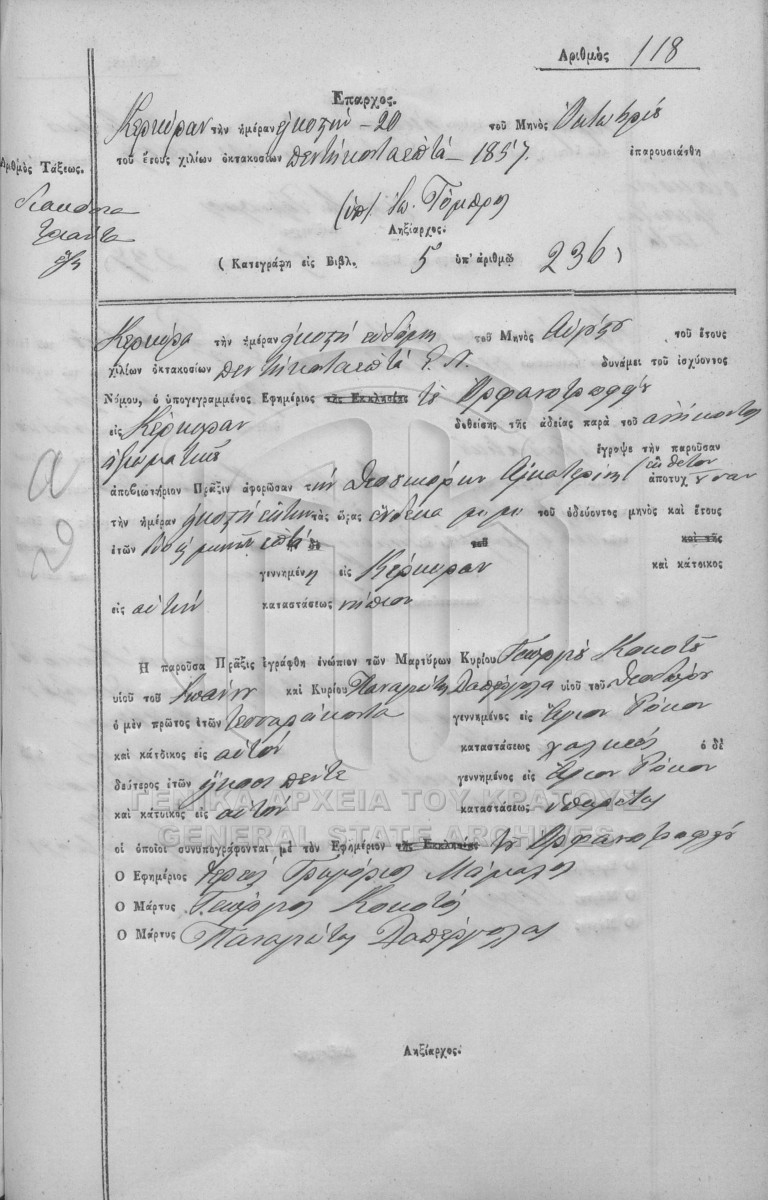 Αριθμὸς 118
Επαρχος.
Κερκύραν τὴν ἡμέραν εἰκοστήν - 20 τοῦ Μηνὸς Ὀκτωβρίου
τοῦ ἔτους χιλίων ὀκτακοσίων πεντήκοντα ἑπτά - 1857. ἐπαρουσιάσθη
Αριθμὸς Τάξεως.
διακόσια
τριάντα
ἕξη
(ὑπ) Ἰω.
Ληξίαρχος.
(Κατεγράφη εἰς Βιβλ. 5ον ὑπ' ἀριθμῷ 236)
Κέρκυρα τὴν ἡμέραν εἰκοστή ἑνδόμη τοῦ Μηνὸς τοῦ ἔτους
χιλίων ὀκτακοσίων πεντήκοντα ἑπτά Ε. Ν. δυνάμει τοῦ ἰσχύοντος
Νόμου, ὁ ὑπογεγραμμένος Εφημέριος τῆς Εκκλησίας τοῦ Ὀρφανοτροφείου
εἰς Κέρκυραν δοθείσης τῆς ἀδείας παρὰ τοῦ ἀνήκοντος
ἔγραψε τὴν παροῦσαν
ἀποβιωτήριον Πρᾶξιν ἀφορῶσαν τὴν Αἰκατερίνη (ἔκθετον ἀποτυχοῦσαν
τὴν ἡμέραν εἰκοστή τὰς ὥρας ἕνδεκα μ.μ. τοῦ ὁδεύοντος μηνὸς καὶ ἔτους
ἐτῶν μηνῶν ἑπτά τοῦ καὶ τῆς
γεννημένη εἰς Κέρκυραν καὶ κάτοικος
εἰς αὐτήν καταστάσεως νήπιον
Η παροῦσα Πρᾶξις ἐγράφθη ἐνώπιον τῶν Μαρτύρων Κυρίου Γεωργίου Κοκοτοῦ
υἱοῦ τοῦ Ἰωάννου καὶ Κυρίου Παναγιώτη υἱοῦ τοῦ
ὁ μὲν πρῶτος ἐτῶν τεσσαράκοντα γεννημένος εἰς Ἅγιον Ρόκον
καὶ κάτοικος εἰς αὐτόν καταστάσεως χαλκεύς ὁ δὲ
δεύτερος ἐτῶν εἴκοσι πέντε γεννημένος εἰς Ἅγιον Ρόκον
καὶ κάτοικος εἰς αὐτόν καταστάσεως ὑπηρέτης
οἱ ὁποῖοι συνυπογράφονται μὲ τὸν Εφημέριον τῆς Εκκλησίας τοῦ Ὀρφανοτροφείου
Ο Εφημέριος Ἱερεύς Γρηγόριος
Ο Μάρτυς Γεώργιος Κοκοτός
Ο Μάρτυς Παναγιώτης
Ληξίαρχος.
ΓΕΝΙΚΑ ΑΡΧΕΙΑ ΤΟΥ ΚΡΑΤΟΥΣ
GENERAL STATE ARCHIVES